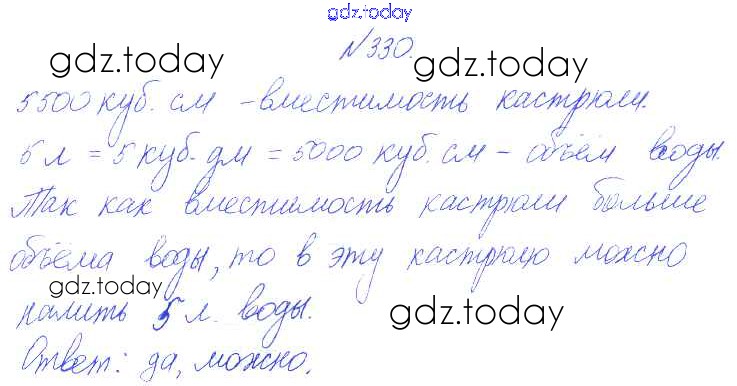 gdz.today
№330.
gdz.today
gdz.today
5500 куб. см – вместимость кастрюли.
5 л = 5 куб. дм = 5000 куб. см – объём воды.
Так как вместимость кастрюли больше
объёма воды, то в эту кастрюлю можно
gdz.today
налить 5 л воды.
gdz.today
Ответ: да, можно.